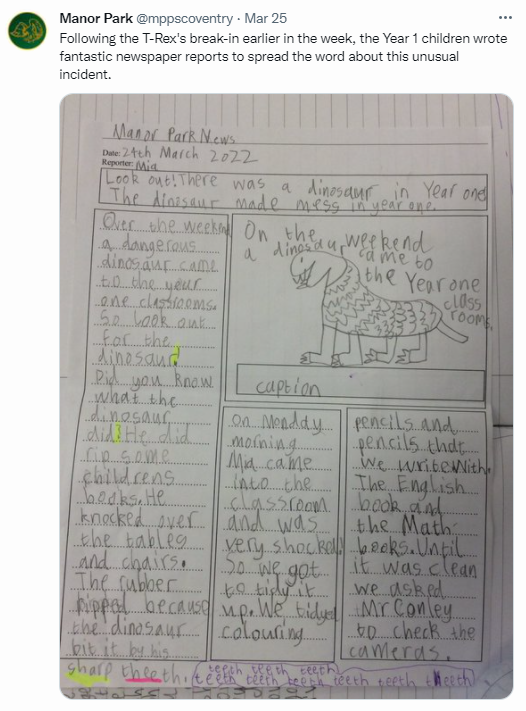 Manor Park @mppscoventry · Mar 25
Following the T-Rex's break-in earlier in the week, the Year 1 children wrote
fantastic newspaper reports to spread the word about this unusual
incident.
Manor Park News
Date: 24th March 2022
Reporter: Mia
Look out! There was a dinosaur in Year one
The dinisaur made mess in year one.
Over the weekend
a dangerous
dinosaur came
to the year
one classrooms.
So look out
for the
dinosaur.
Did you know
what the
dinosaur
did? He did
rip some
childrens
books. He
knocked over
the tables
and chairs.
The rubber
ripped because
the dinosaur
bit it by his
sharp theeth.
On the weekend
a dinosaur came to
the Year one
class
rooms.
caption
On Monday
morning
Mia came
into the
classroom
and was
very shocked!
So we got
to tidy it
up. We tidyed
colouring
pencils and
pencils that
we write with.
The English
book and
the Math
books. Until
it was clean
we asked
Mr Conley
to check the
cameras.
teeth teeth teeth
teeth teeth teeth teeth teeth theeth